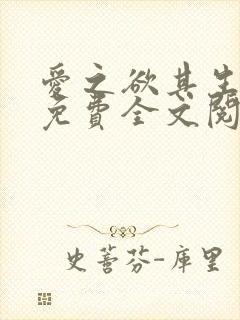 愛之欲其生
免費全文閱
史蒂芬-庫里